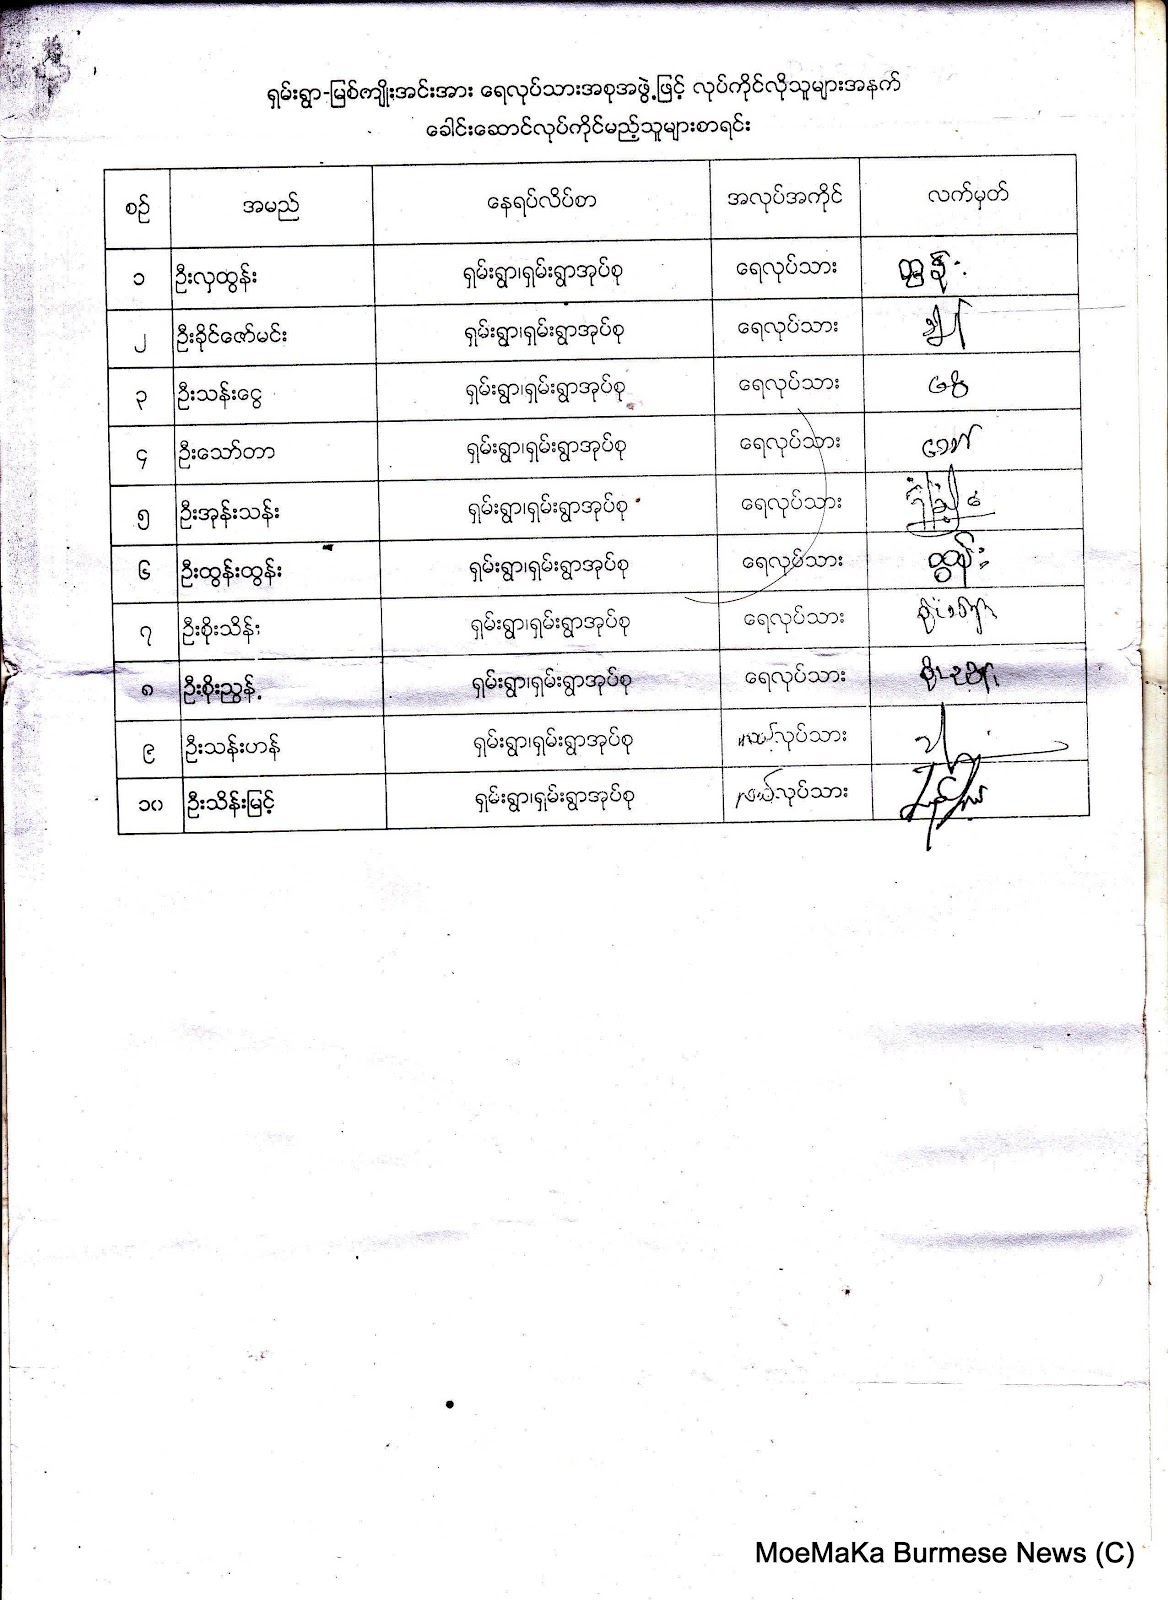 ရှမ်းရွာ-မြစ်ကျိုးအင်းအား ရေလုပ်သားအစုအဖွဲ့ဖြင့် လုပ်ကိုင်လိုသူများအနက်
ခေါင်းဆောင်လုပ်ကိုင်မည့်သူများစာရင်း
စဉ် အမည် နေရပ်လိပ်စာ အလုပ်အကိုင် လက်မှတ်
၁ ဦးလှထွန်း ရှမ်းရွာ၊ရှမ်းရွာအုပ်စု ရေလုပ်သား ထွန်း
၂ ဦးခိုင်ဇော်မင်း ရှမ်းရွာ၊ရှမ်းရွာအုပ်စု ရေလုပ်သား
၃ ဦးသန်းငွေ ရှမ်းရွာ၊ရှမ်းရွာအုပ်စု ရေလုပ်သား
၄ ဦးသော်တာ ရှမ်းရွာ၊ရှမ်းရွာအုပ်စု ရေလုပ်သား
၅ ဦးအုန်းသန်း ရှမ်းရွာ၊ရှမ်းရွာအုပ်စု ရေလုပ်သား
၆ ဦးထွန်းထွန်း ရှမ်းရွာ၊ရှမ်းရွာအုပ်စု ရေလုပ်သား ထွန်း
၇ ဦးစိုးသိန်း ရှမ်းရွာ၊ရှမ်းရွာအုပ်စု ရေလုပ်သား
၈ ဦးစိုးညွန့် ရှမ်းရွာ၊ရှမ်းရွာအုပ်စု ရေလုပ်သား
၉ ဦးသန်းဟန် ရှမ်းရွာ၊ရှမ်းရွာအုပ်စု လုပ်သား
၁၀ ဦးသိန်းမြင့် ရှမ်းရွာ၊ရှမ်းရွာအုပ်စု လုပ်သား
MoeMaKa Burmese News (C)